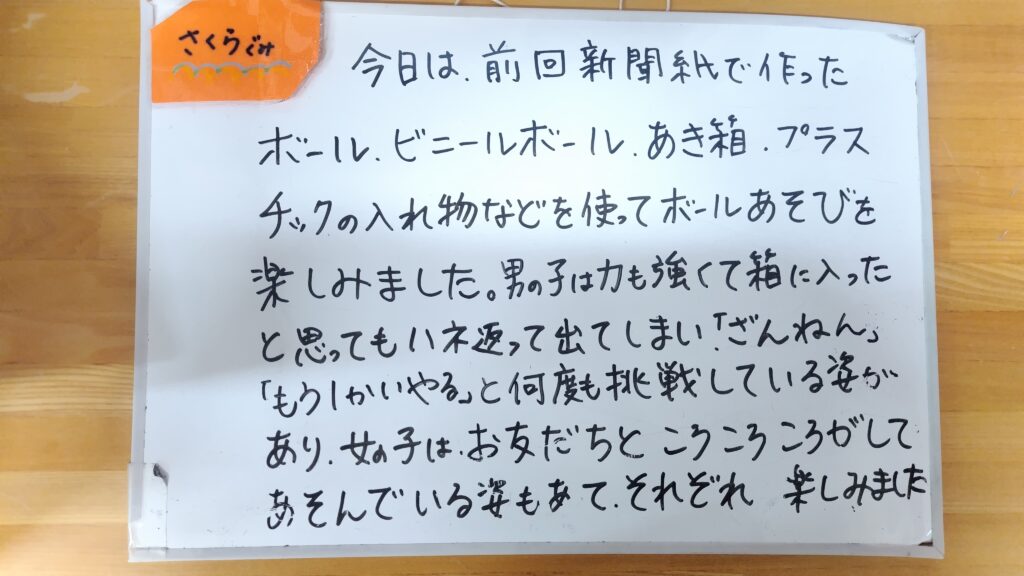 さくらぐみ
今日は、前回新聞紙で作った
ボール、ビニールボール、あき箱、プラス
チックの入れ物などを使ってボールあそびを
楽しみました。男の子は力も強くて箱に入った
と思ってもハネ返って出てしまい、「ざんねん」
「もう1かいやる」と何度も挑戦している姿が
あり、女の子は、お友だちと ころころ ころがして
あそんでいる姿もあて、それぞれ 楽しみました